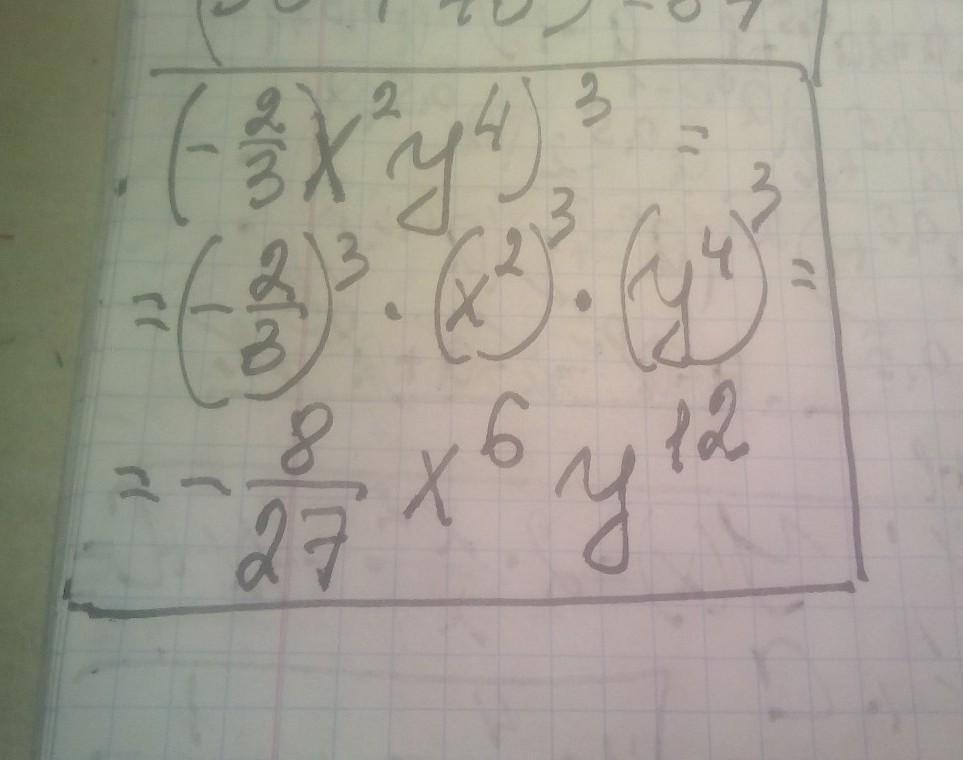 (-2/3)x²y⁴)³ =
=(-2/3)³ · (x²)³ · (y⁴)³ =
= - 8/27 x⁶ y¹²